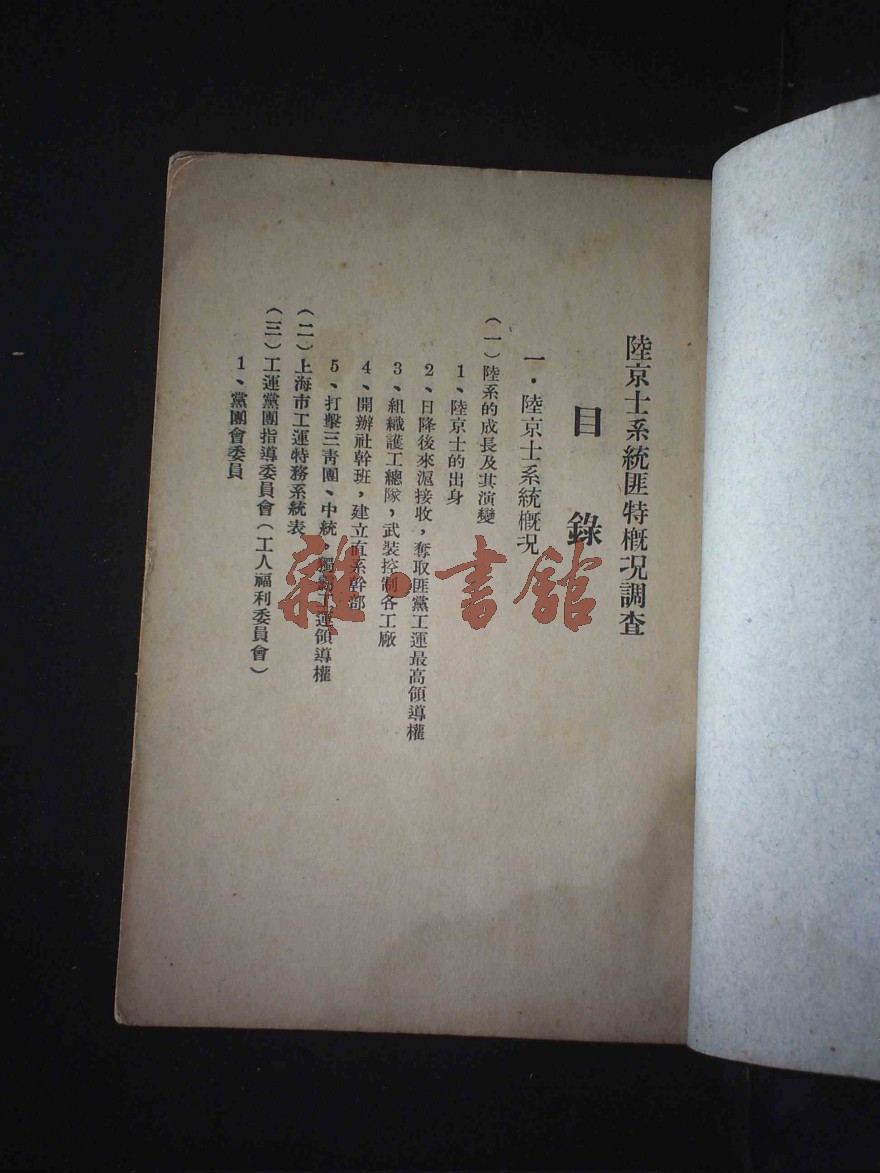 陸京士系統匪特概況調查
目錄
一．陸京士系統概況
（一）陸系的成長及其演變
1、陸京士的出身
2、日降後來滬接收，奪取匪黨工運最高領導權
3、組織護工總隊，武裝控制各工廠
4、開辦社幹班，建立直系幹部
5、打擊三青團、中統，獨霸工運領導權
（二）上海市工運特務系統表
（三）工運黨團指導委員會（工人福利委員會）
1、黨團會委員
雜·書館